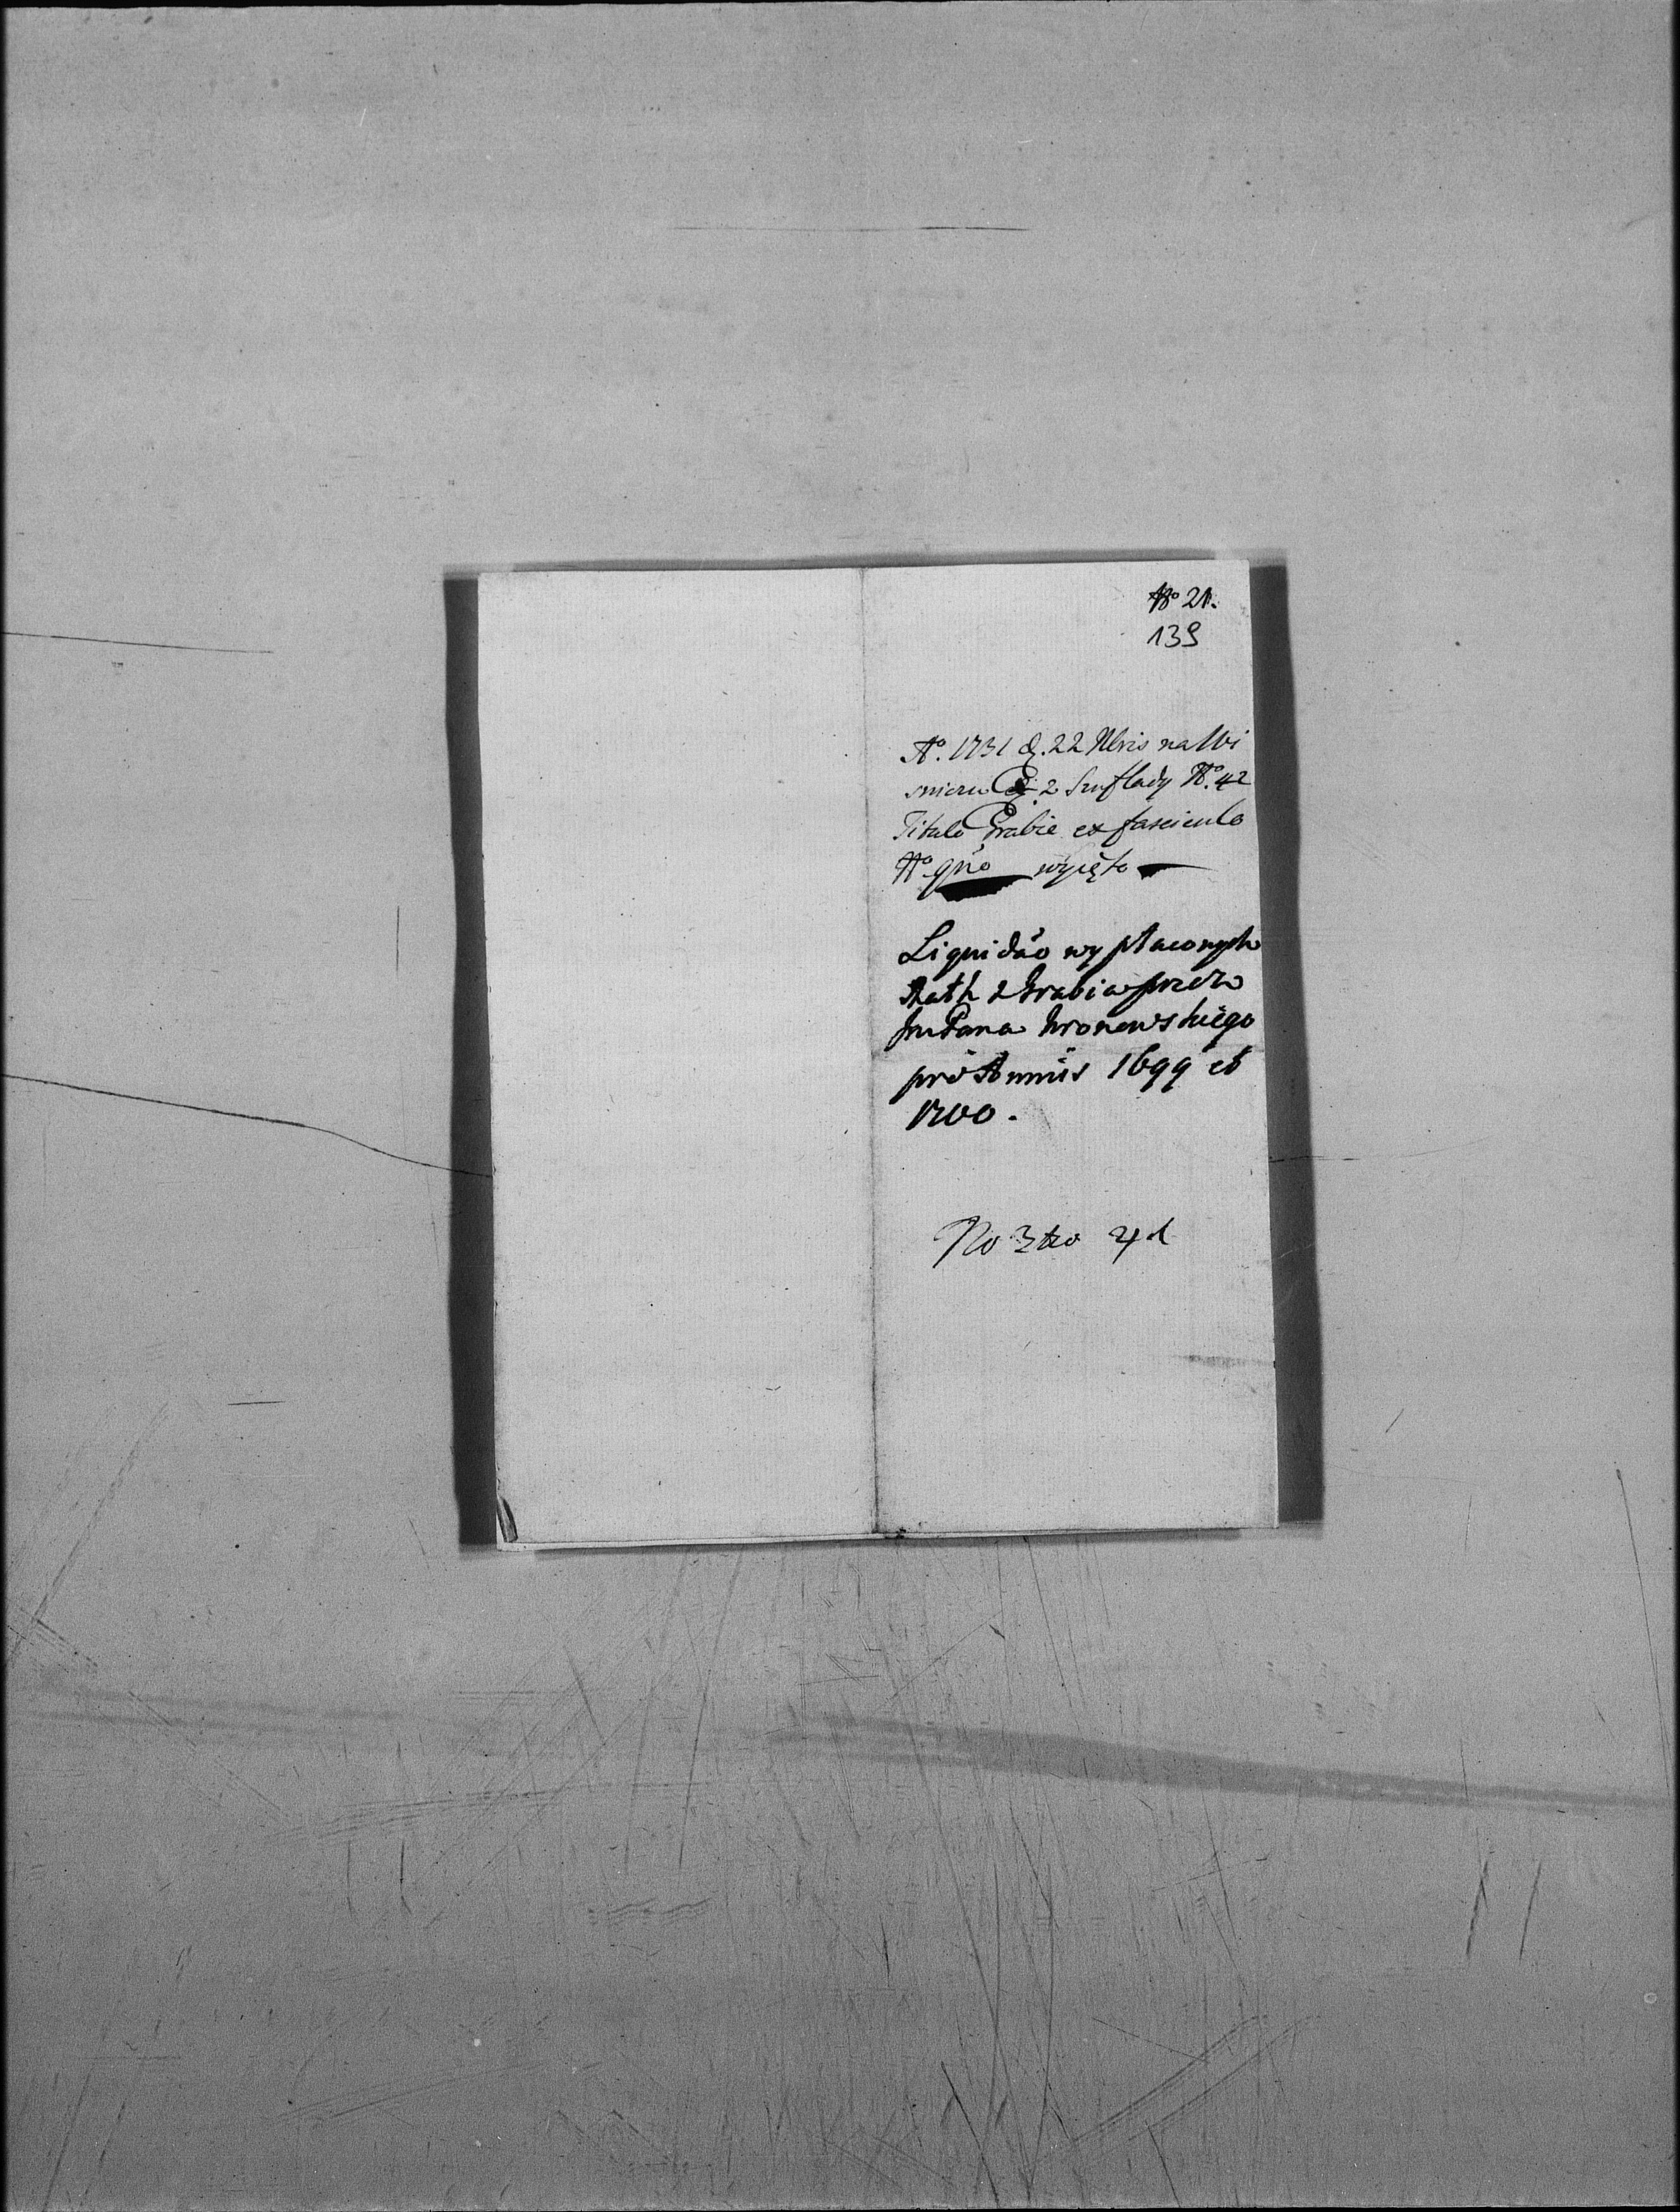 No 21.
139
Ao. 1731 d. 22 Nbris na Wi
śniczu z 2 Szuflady No. 42
Titulo Grabie ex fasciculo
No qŕto wyięto
Liquidăo wypłaconych
Rath z Grabia przez
JmPana Wronowskiego
pro Annis 1699 et
1700.
No 3tio 41